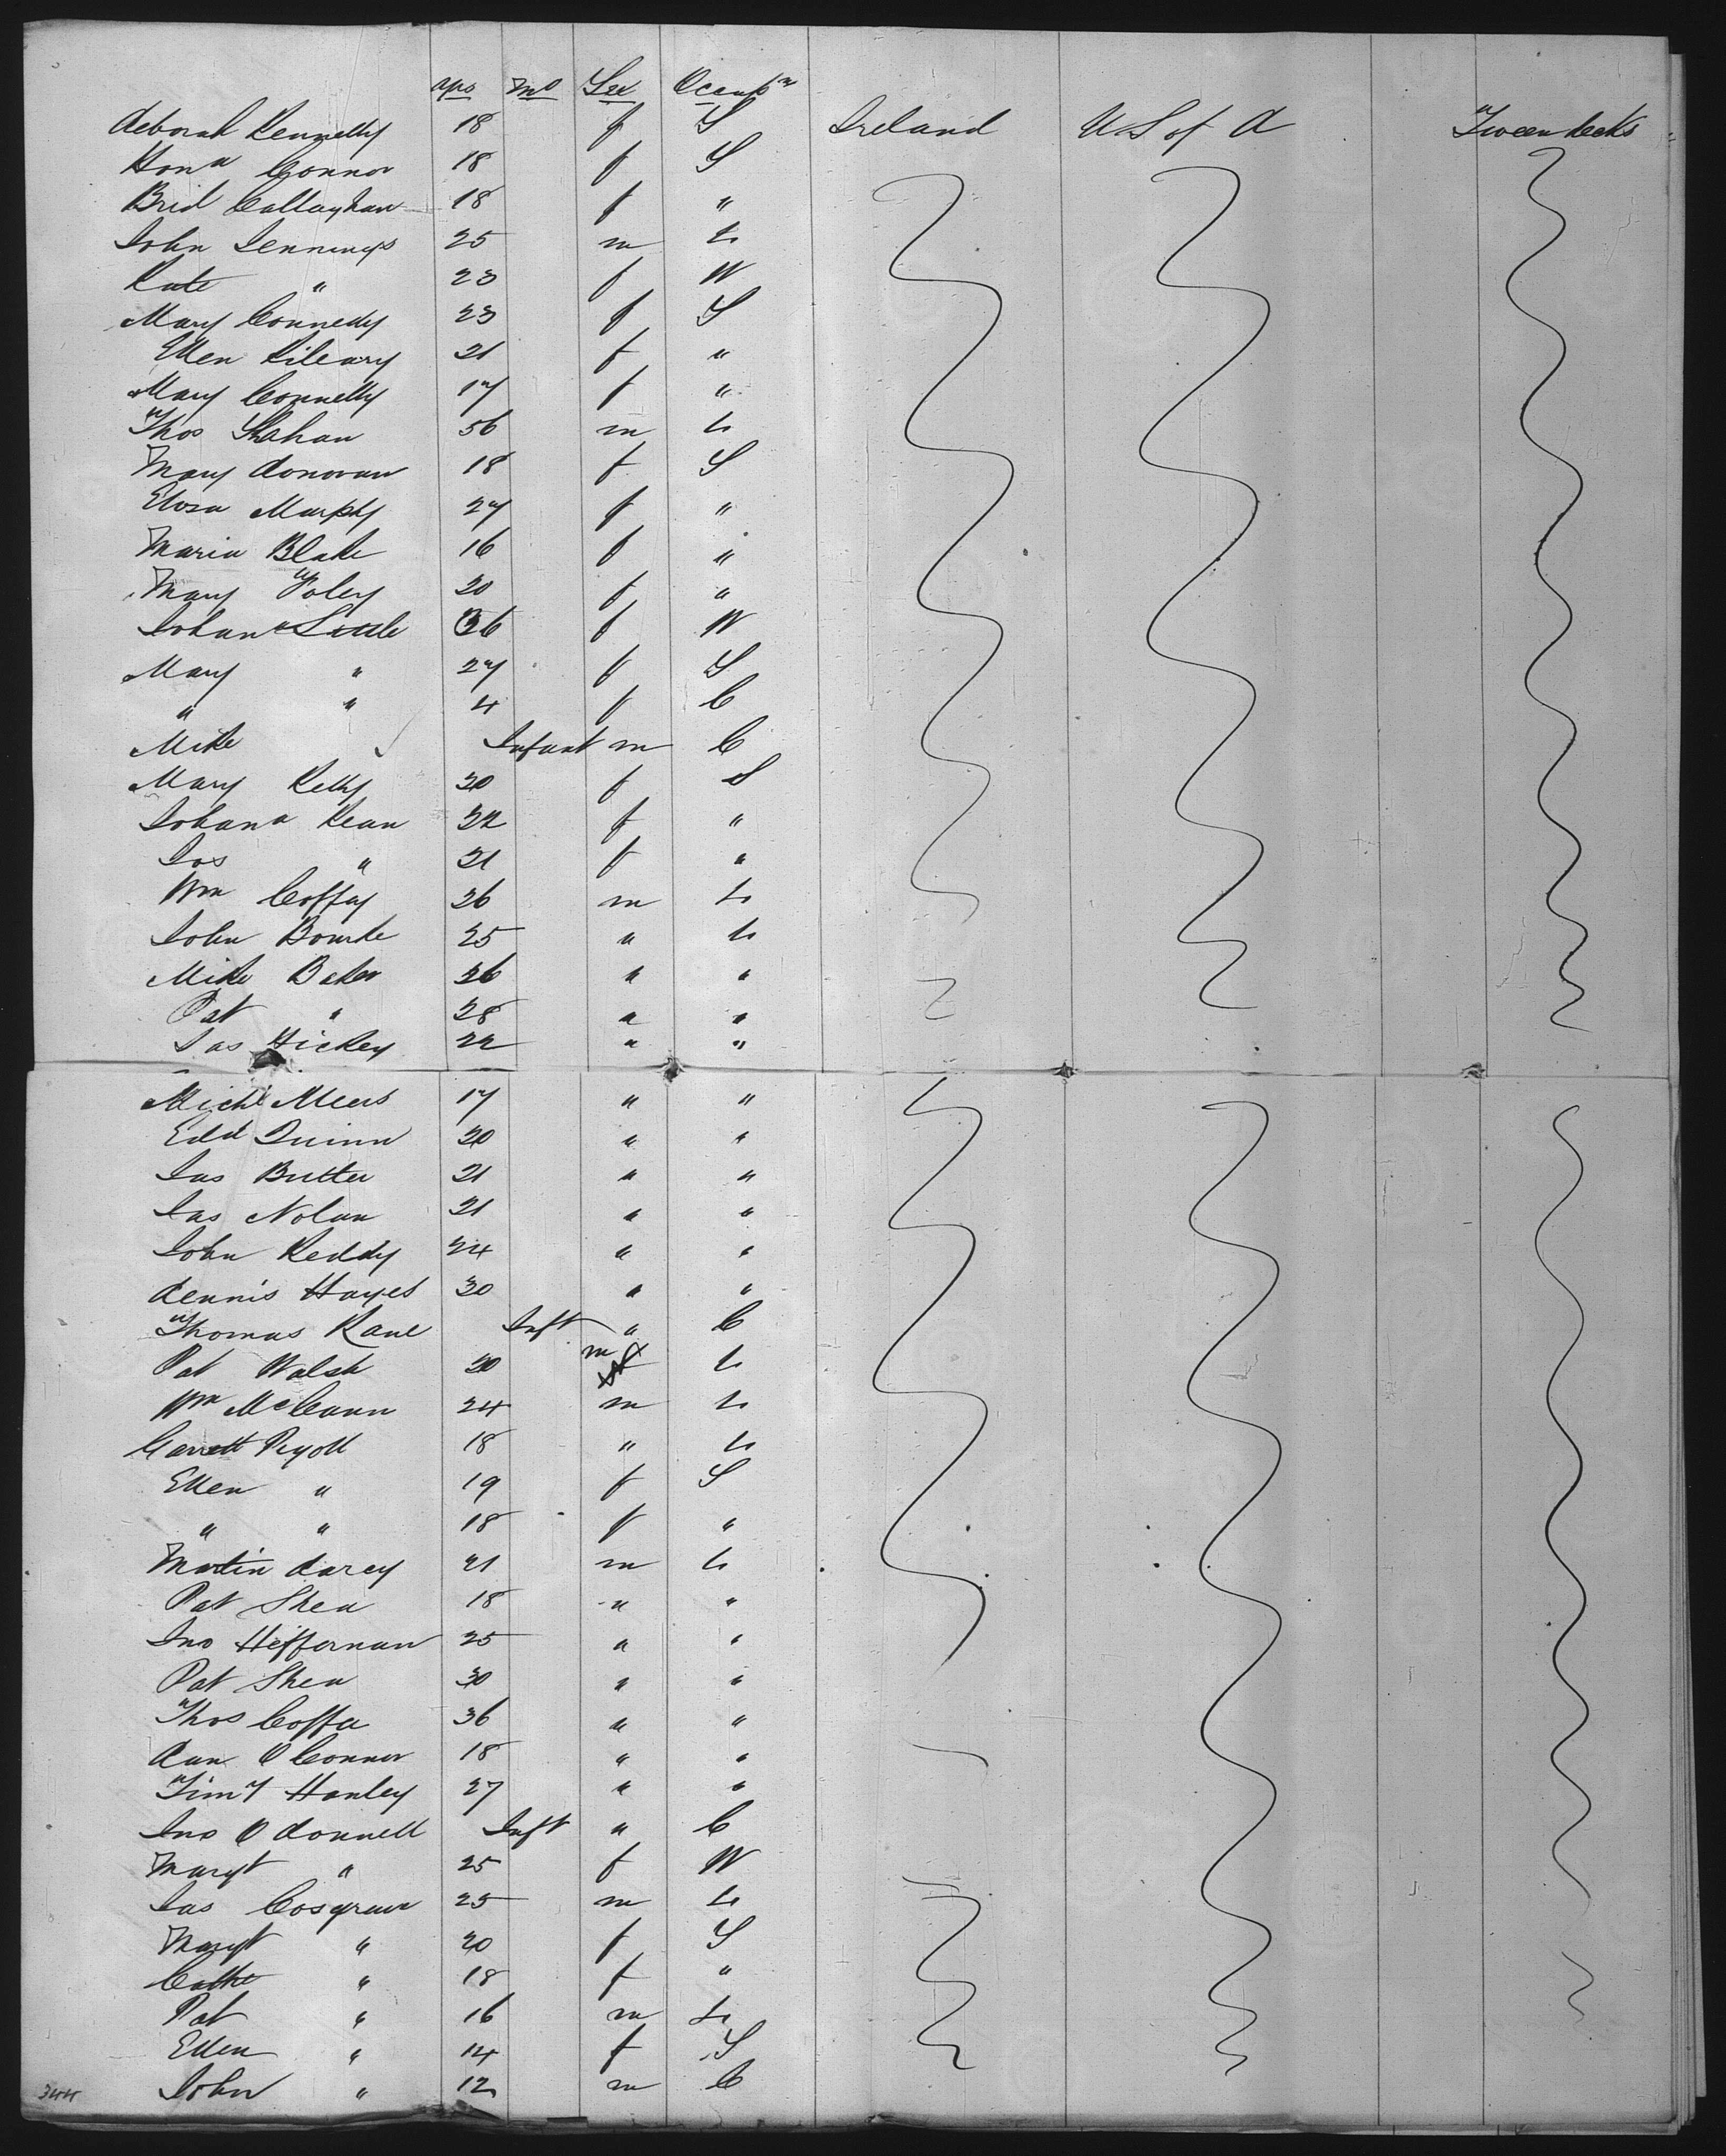 yrs mo Sex Occupn
Deborah Kennelly 18 f S Ireland U S of A Tween decks
Hona Connor 18 f S
Brid Callaghan 18 f "
John Jennings 25 m L
Kate " 23 f W
Mary Connedy 23 f S
Ellen Kileary 21 f "
Mary Connelly 17 f "
Thos Shahan 56 m L
Mary Donovan 18 f S
Eliza Murphy 27 f "
Maria Blake 16 f "
Mary Foley 20 f "
Johana Little 36 f W
Mary " 27 f S
" " 4 f C
Mike Infant m C
Mary Kelly 30 f S
Johana Kean 22 f "
Jos " 21 f "
Wm Coffey 26 m L
John Bourke 25 " L
Mike Baker 26 " "
Pat " 28 " "
Jas Hickey 22 " "
Michl Meers 17 " "
Edd Quinn 20 " "
Jas Butter 21 " "
Jas Nolan 21 " "
John Reddy 24 " "
Dennis Hayes 30 " "
Thomas Kane Inft " C
Pat Walsh 20 m L
Wm McCann 24 m L
Garrett Pryoll 18 " L
Ellen " 19 f S
" " 18 f "
Martin Darcy 21 m L
Pat Shea 18 " "
Jno Heffernan 25 " "
Pat Shea 30 " "
Thos Coffee 36 " "
Dan O Connor 18 " "
Timy Hanley 27 " "
Jno O Donnell Inft " C
Margt " 25 f W
Jas Cosgrave 25 m L
Margt " 20 f S
Cathe " 18 f "
Pat " 16 m L
Ellen " 14 f S
John " 12 m C
344